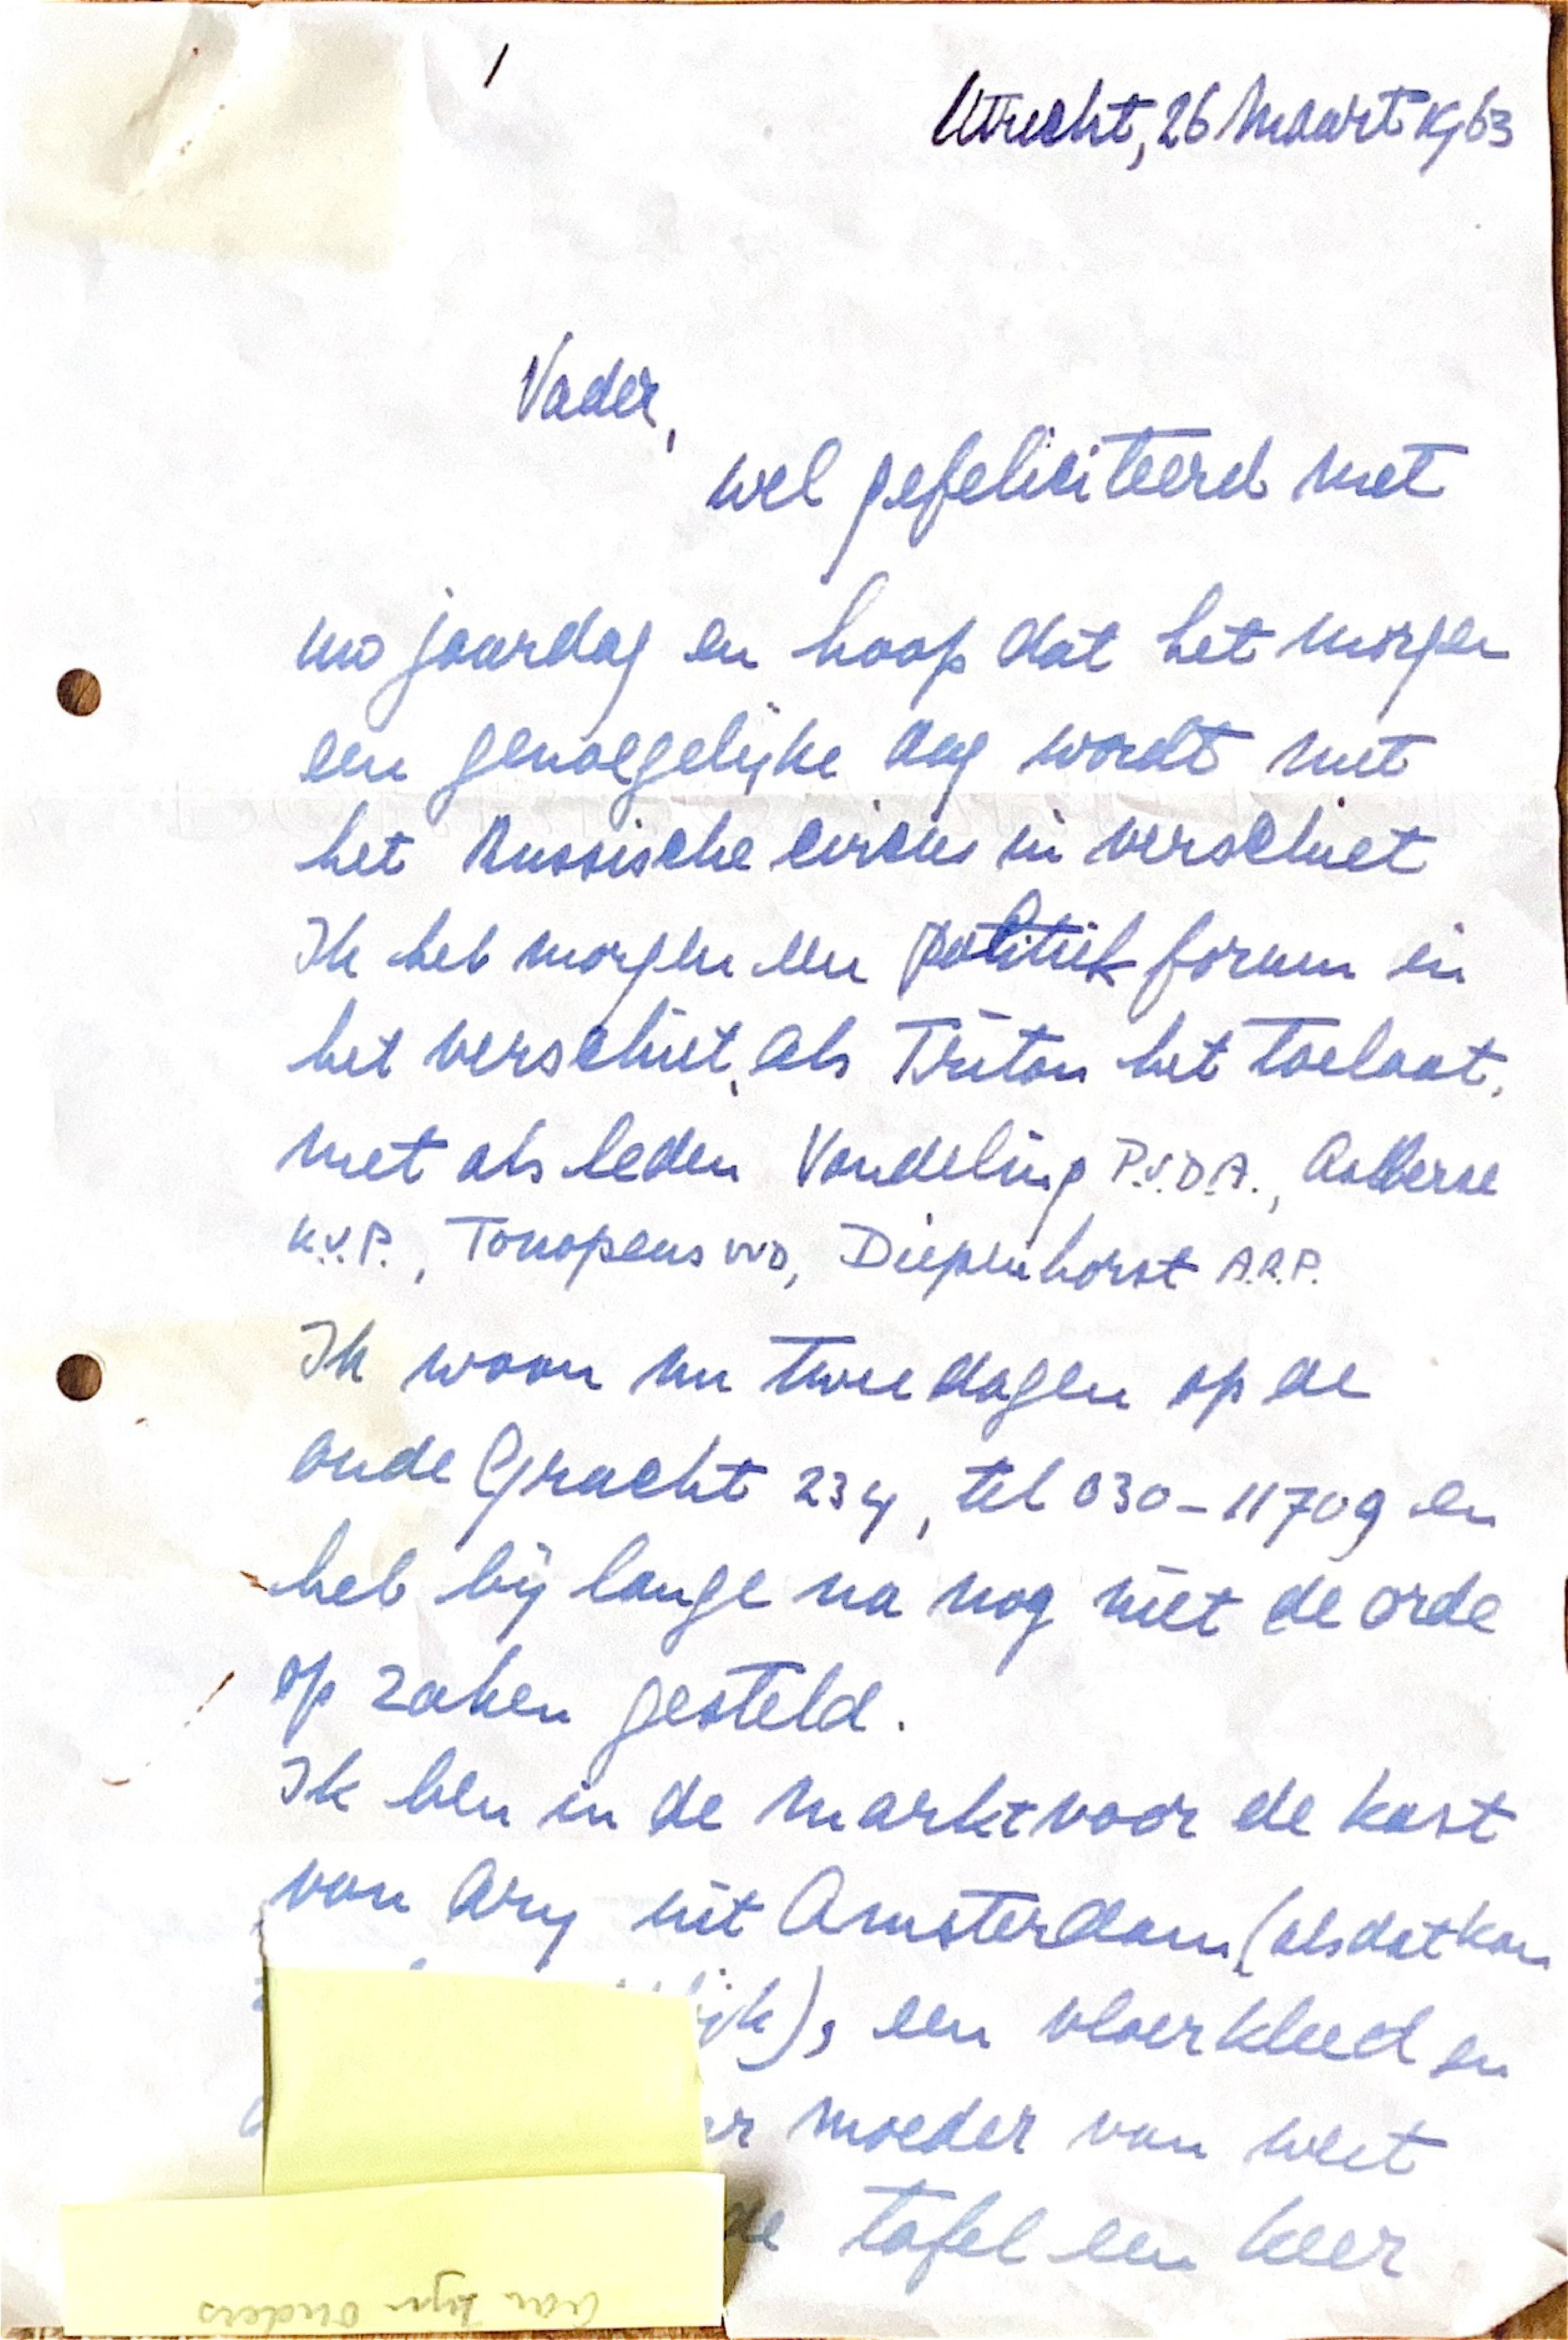 1
Utrecht, 26 Maart 1963
Vader,
wel gefeliciteerd met
uw jaardag en hoop dat het morgen
een genoegelijke dag wordt met
het Russische circus in verschiet
Ik heb morgen een politiek forum in
het verschiet, als Triton het toelaat,
met als leden Vondeling P.V.D.A., Aalberse
K.V.P., Toxopeus VVD, Diepenhorst A.R.P.
Ik woon nu twee dagen op de
oude Gracht 234, tel 030-11709 en
heb bij lange na nog niet de orde
op zaken gesteld.
Ik ben in de markt voor de kast
van Ary uit Amsterdam (als dat kan
ijk), een vloerkleed en
moeder van weet
de tafel een keer
aan zijn ouders